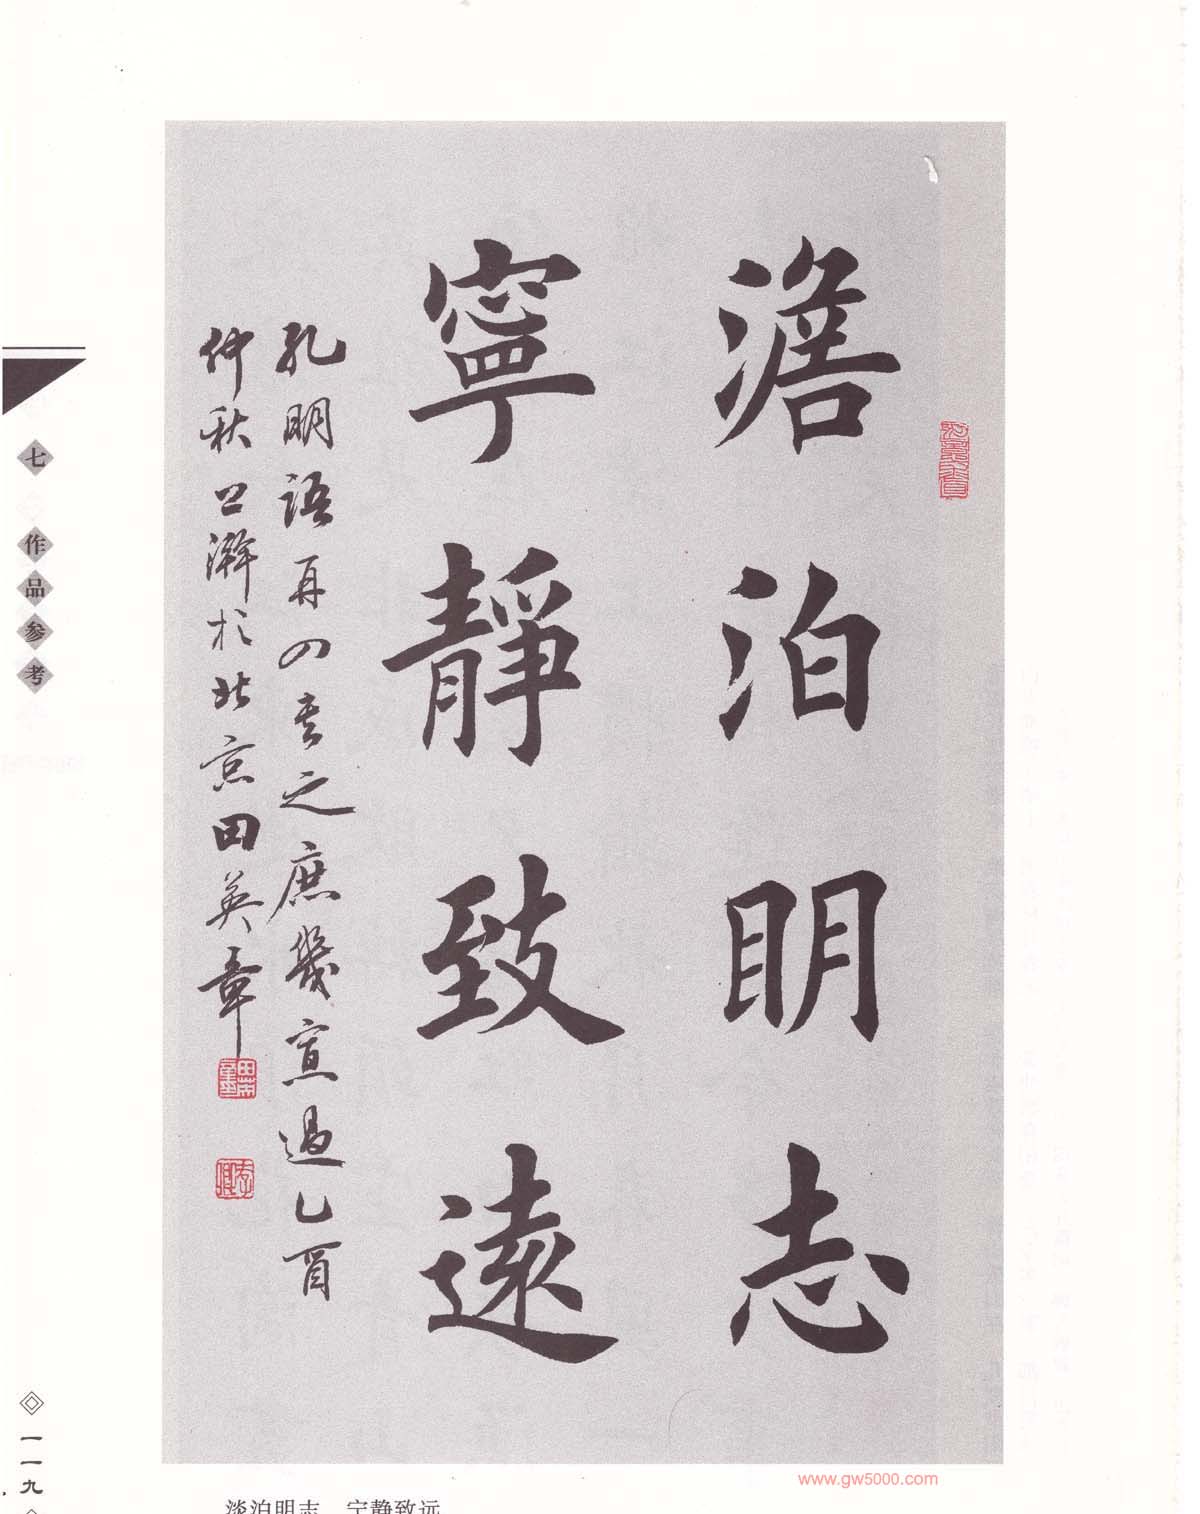 澹泊明志
寧靜致遠
孔明語再四書之庶幾宜過乙酉
仲秋日澣於北京田英章
七 作品参考
一一九
www.gw5000.com
淡泊明志 宁静致远